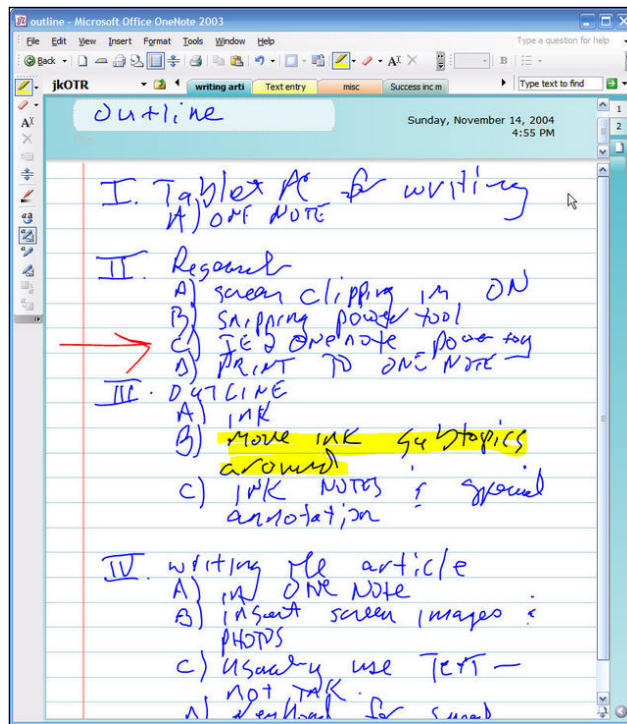 outline - Microsoft Office OneNote 2003
File Edit View Insert Format Tools Window Help
Type a question for help
Back
jkOTR
writing arti
Text entry
misc
Success inc m
Type text to find
outline
Sunday, November 14, 2004
4:55 PM
1
2
I. Tablet PC for writing
A) ONE NOTE
II. Research
A) screen clipping in ON
B) snipping power tool
C) IE 2 ONE note power toy
D) PRINT TO ONE NOTE
III. OUTLINE
A) INK
B) Move INK subtopics
around
C) INK NOTES & special
annotation
IV. writing the article
A) IN ONE Note
B) insert screen images &
PHOTOS
C) Usually use TEXT —
NOT INK.
for